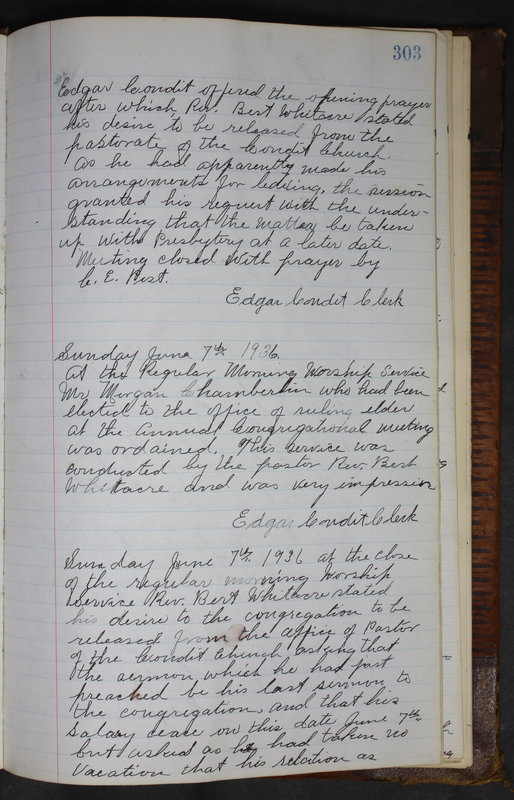 303
Edgar Condit offered the opening prayer
after which Rev. Bert Whitacre stated
his desire to be released from the
pastorate of the Condit Church.
As he had apparently made his
arrangements for leaving, the session
granted his request with the under-
standing that the matter be taken
up with Presbytery at a later date.
Meeting closed with prayer by
C. E. Post.
Edgar Condit Clerk
Sunday June 7th 1936.
At the Regular Morning Worship Service
Mr Morgan Chamberlin who had been
elected to the office of ruling elder
at the Annual Congregational meeting
was ordained. This service was
conducted by the pastor Rev. Bert
Whittacre and was very impressive
Edgar Condit Clerk
Sunday June 7th 1936 at the close
of the regular morning Worship
Service Rev. Bert Whitacre stated
his desire to the congregation to be
released from the office of Pastor
of the Condit Church asking that
the sermon which he had just
preached be his last sermon to
the congregation and that his
salary cease on this date June 7th
but asked as he had taken no
Vacation that his relation as